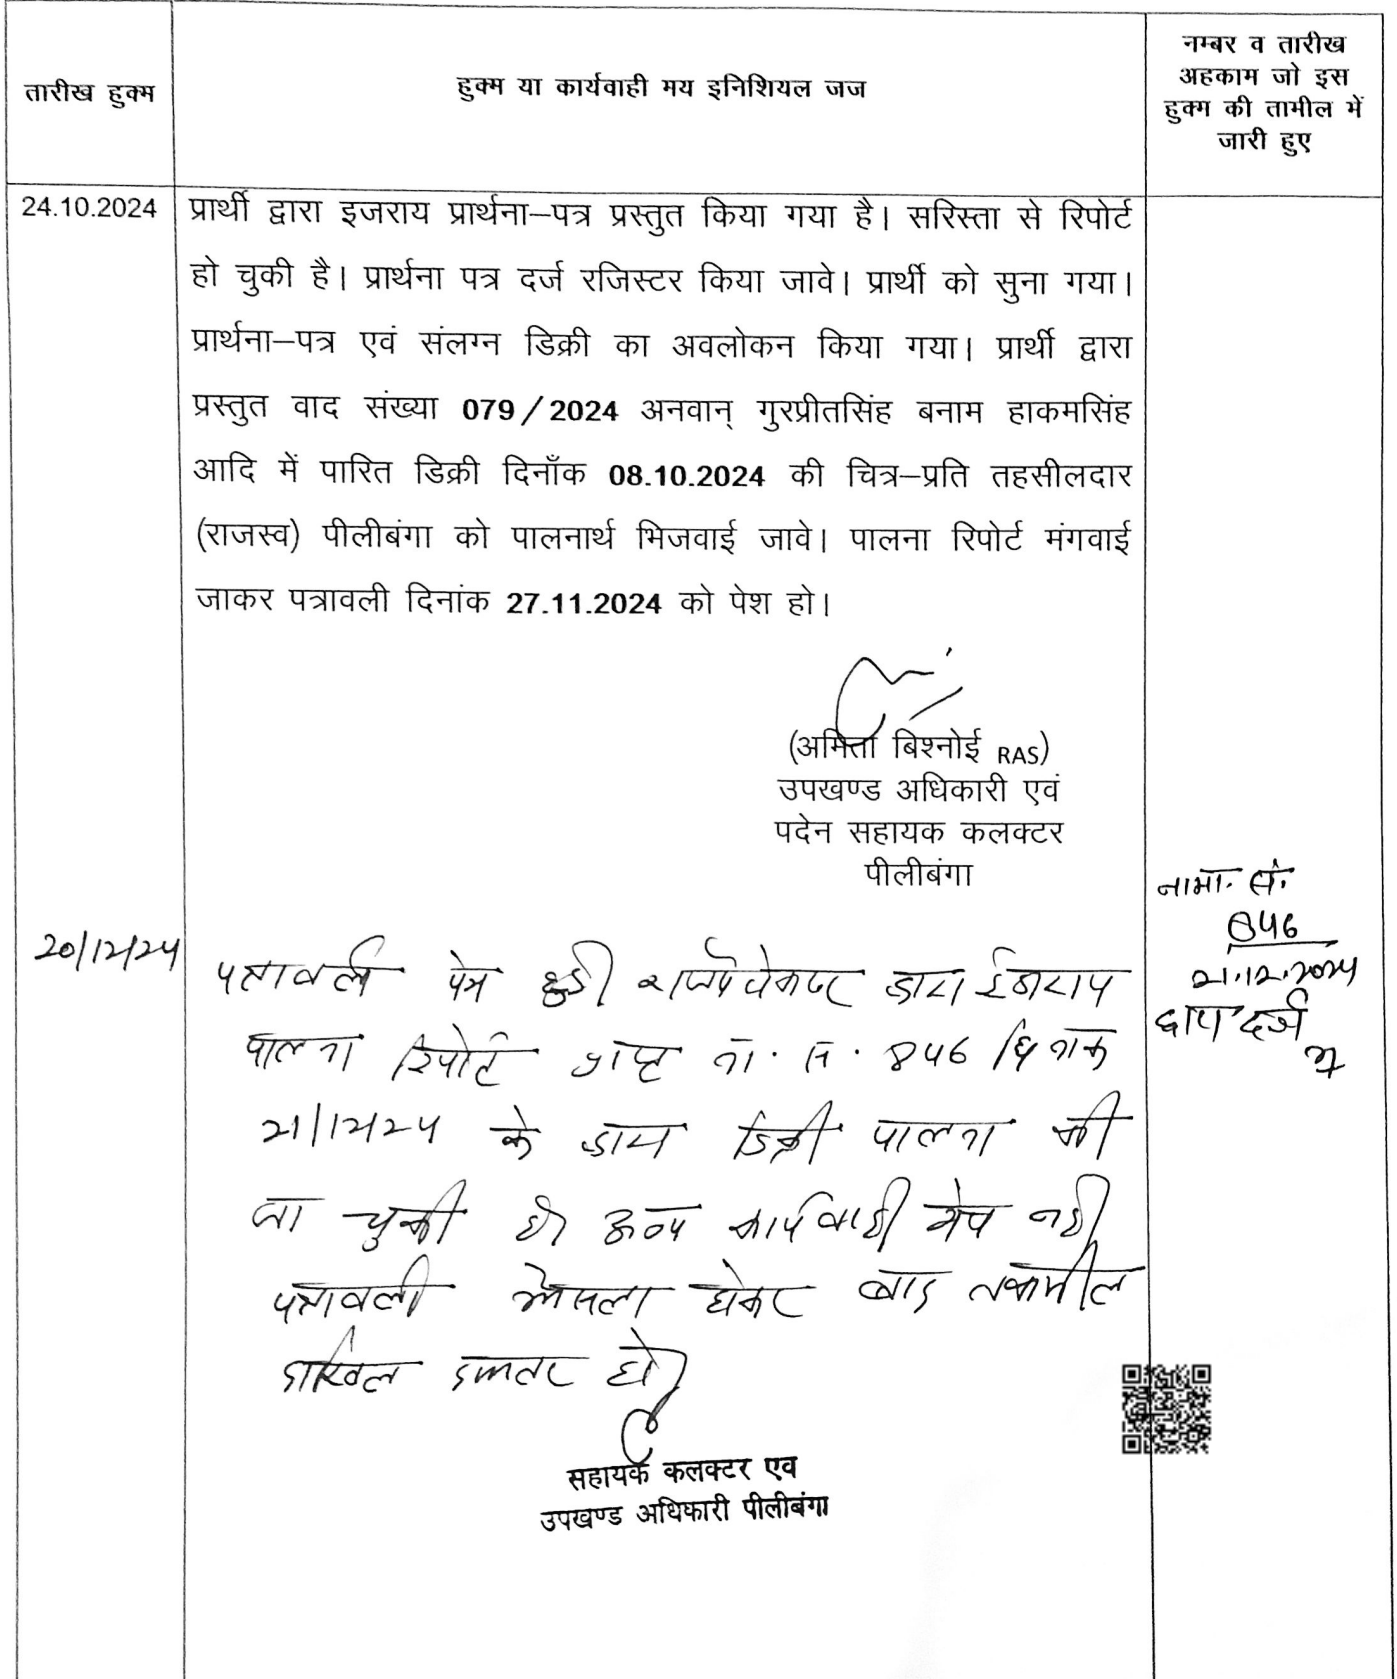 तारीख हुक्म
हुक्म या कार्यवाही मय इनिशियल जज
नम्बर व तारीख
अहकाम जो इस
हुक्म की तामील में
जारी हुए
24.10.2024
प्रार्थी द्वारा इजराय प्रार्थना–पत्र प्रस्तुत किया गया है। सरिस्ता से रिपोर्ट
हो चुकी है। प्रार्थना पत्र दर्ज रजिस्टर किया जावे। प्रार्थी को सुना गया।
प्रार्थना–पत्र एवं संलग्न डिक्री का अवलोकन किया गया। प्रार्थी द्वारा
प्रस्तुत वाद संख्या 079/2024 अनवान् गुरप्रीतसिंह बनाम हाकमसिंह
आदि में पारित डिक्री दिनाँक 08.10.2024 की चित्र–प्रति तहसीलदार
(राजस्व) पीलीबंगा को पालनार्थ भिजवाई जावे। पालना रिपोर्ट मंगवाई
जाकर पत्रावली दिनांक 27.11.2024 को पेश हो।
(अमिता बिश्नोई RAS)
उपखण्ड अधिकारी एवं
पदेन सहायक कलक्टर
पीलीबंगा
नामा. सं.
846
21.12.2024
दर्ज
पत्रावली पेश हुई द्वारा ईजराय
पालना रिपोर्ट प्राप्त ना. स. 846 दिनांक
21/12/24 के द्वारा डिक्री पालना की
जा चुकी है। अन्य कार्यवाही शेष नही
पत्रावली फैसला होकर बाद तकमील
दाखिल दफ्तर हो।
सहायक कलक्टर एव
उपखण्ड अधिकारी पीलीबंगा